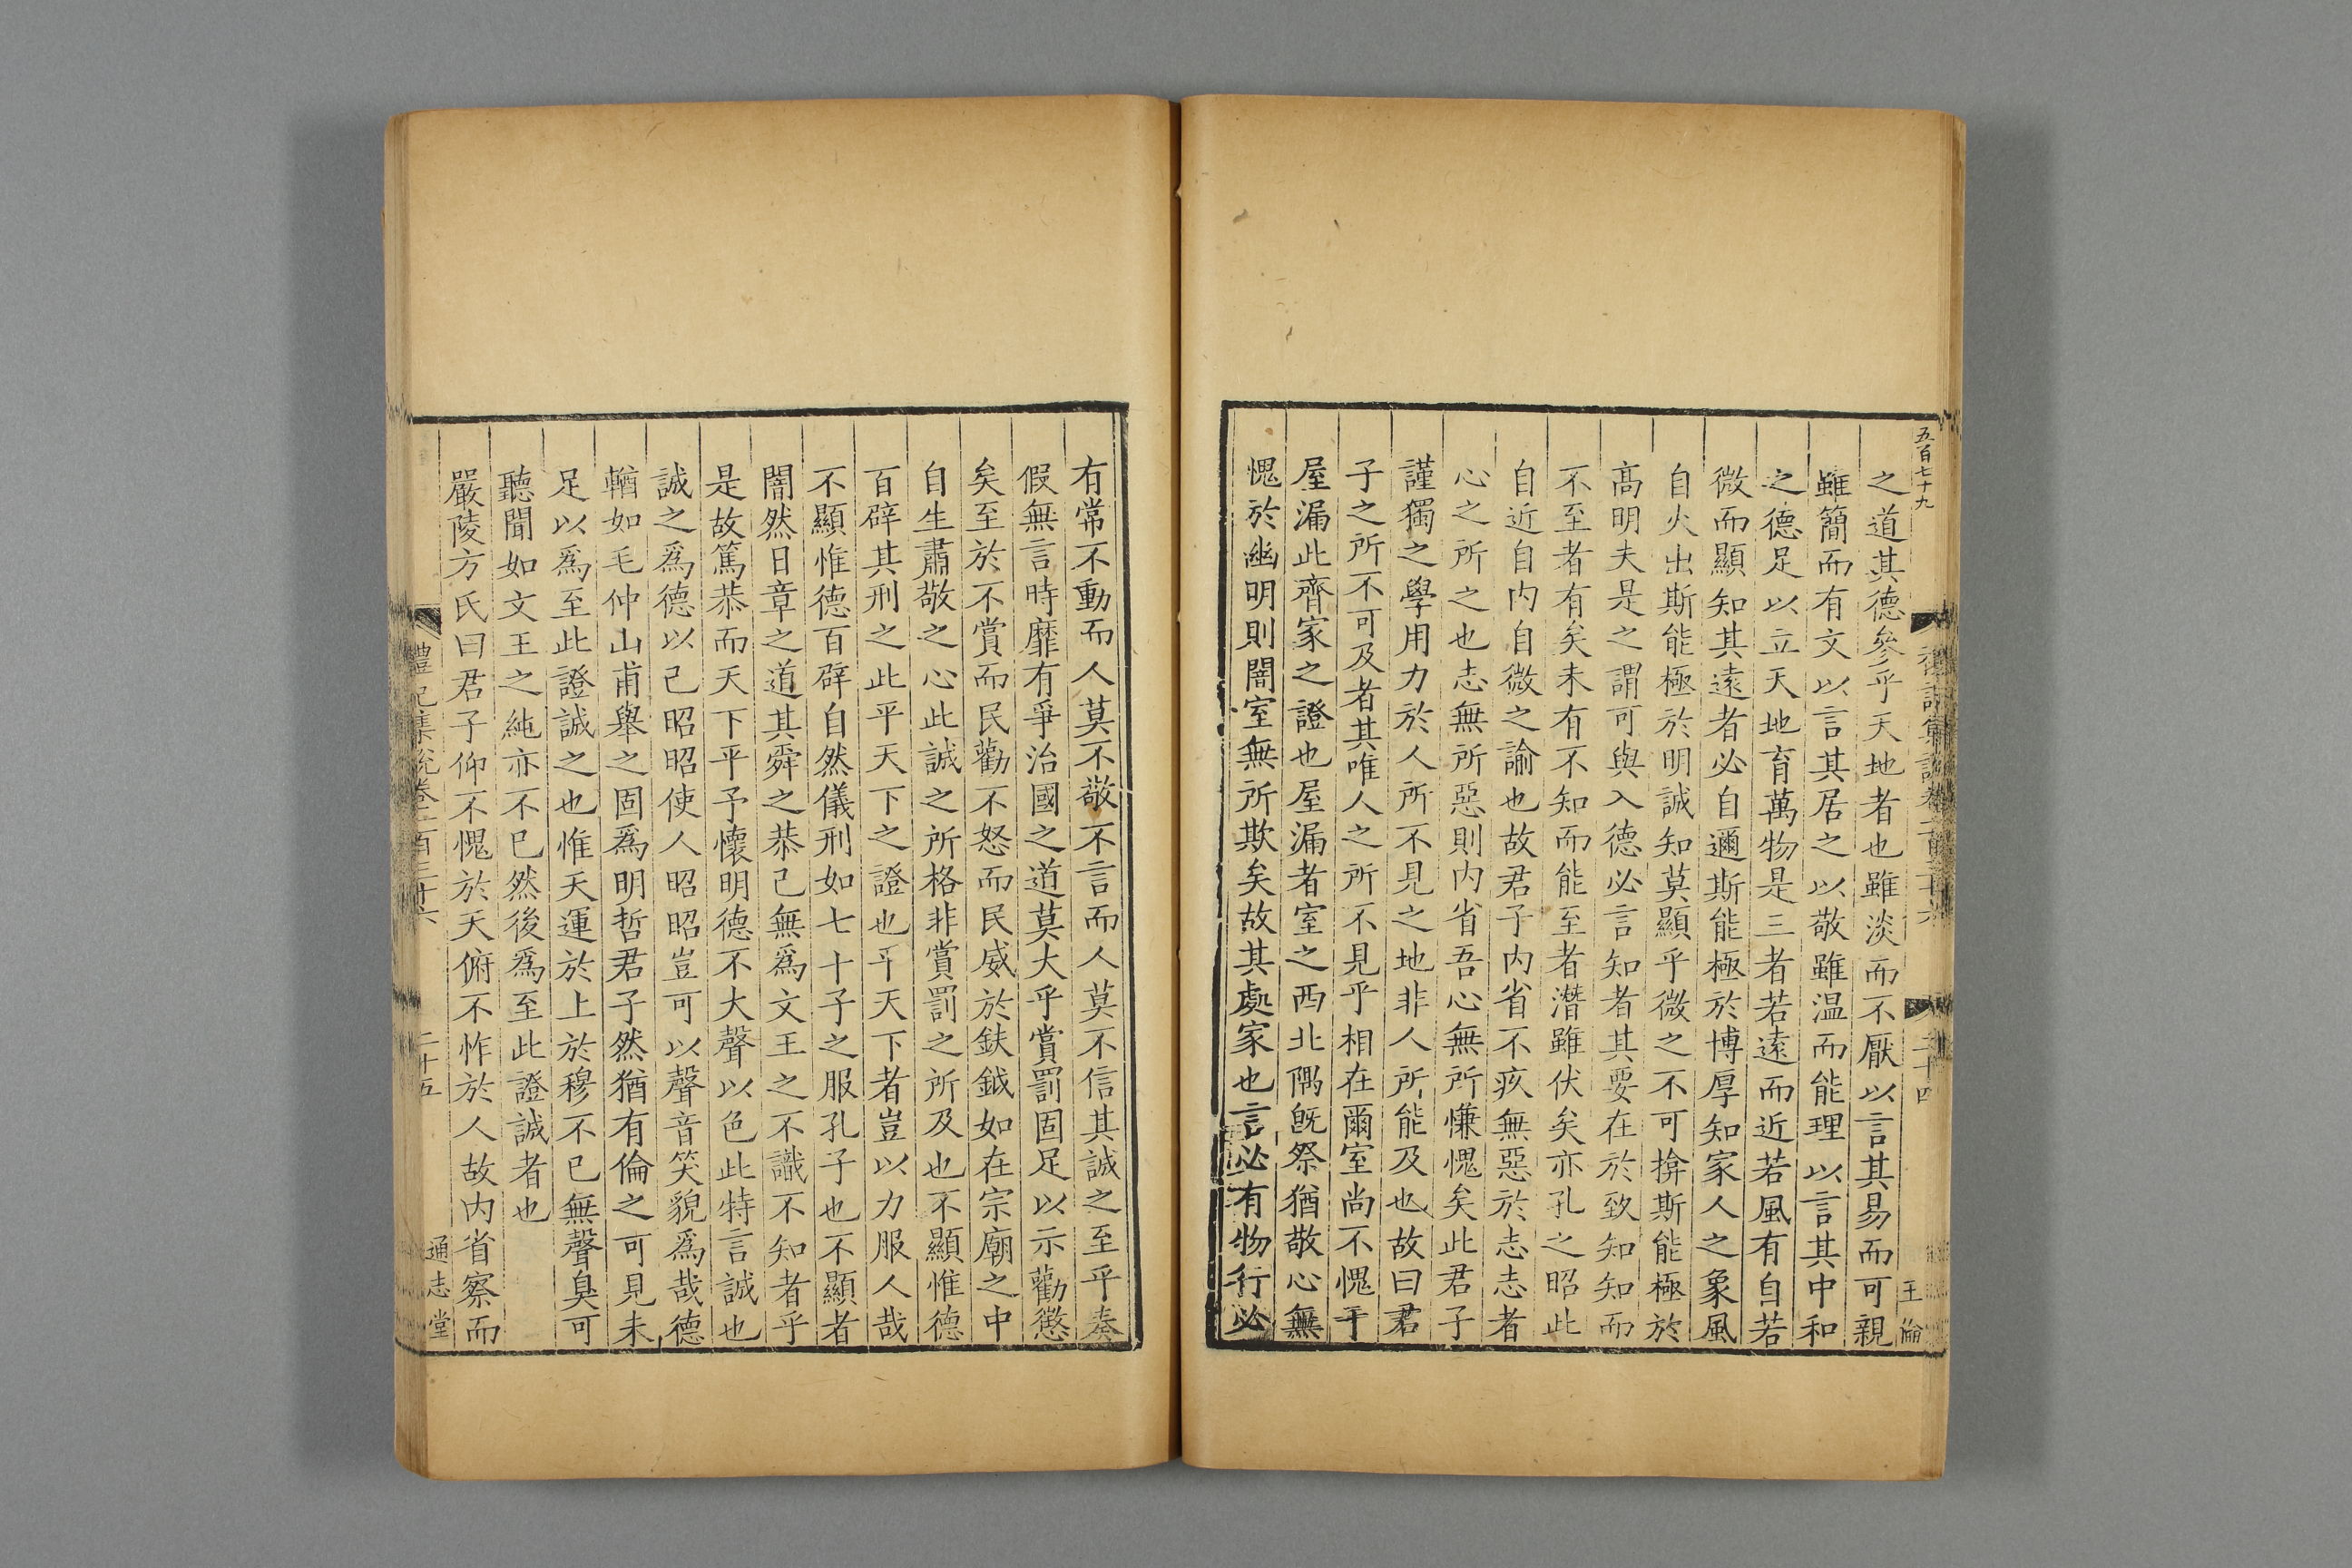 五百七十九
二十四
王倫
之道其德參乎天地者也雖淡而不厭以言其易而可親
雖簡而有文以言其居之以敬雖温而能理以言其中和
之德足以立天地育萬物是三者若遠而近若風有自若
微而顯知其遠者必自邇斯能極於博厚知家人之象風
自火出斯能極於明誠知莫顯乎微之不可揜斯能極於
高明夫是之謂可與入德必言知者其要在於致知知而
不至者有矣未有不知而能至者潛雖伏矣亦孔之昭此
自近自内自微之諭也故君子内省不疚無惡於志志者
心之所之也志無所惡則内省吾心無所慊愧矣此君子
謹獨之學用力於人所不見之地非人所能及也故曰君
子之所不可及者其唯人之所不見乎相在爾室尚不愧于
屋漏此齊家之證也屋漏者室之西北隅旣祭猶敬心無
愧於幽明則闇室無所欺矣故其處家也言必有物行必
有常不動而人莫不敬不言而人莫不信其誠之至乎奏
假無言時靡有爭治國之道莫大乎賞罰固足以示勸懲
矣至於不賞而民勸不怒而民威於鈇鉞如在宗廟之中
自生肅敬之心此誠之所格非賞罰之所及也不顯惟德
百辟其刑之此平天下之證也平天下者豈以力服人哉
不顯惟德百辟自然儀刑如七十子之服孔子也不顯者
闇然日章之道其舜之恭己無爲文王之不識不知者乎
是故篤恭而天下平予懷明德不大聲以色此特言誠也
誠之爲德以己昭昭使人昭昭豈可以聲音笑貌爲哉德
輶如毛仲山甫舉之固爲明哲君子然猶有倫之可見未
足以爲至此證誠之也惟天運於上於穆不已無聲臭可
聽聞如文王之純亦不已然後爲至此證誠者也
嚴陵方氏曰君子仰不愧於天俯不怍於人故内省察而
禮記集說卷一百三十六
二十五
通志堂